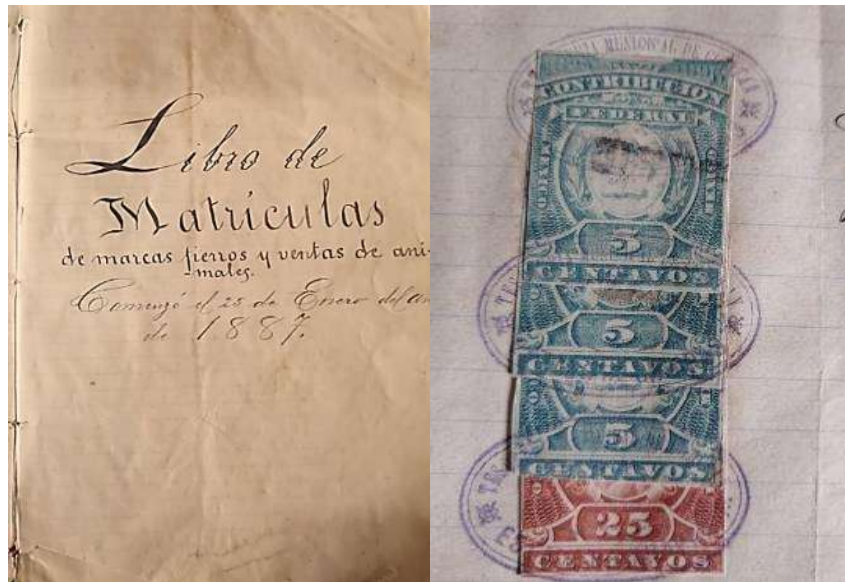 Libro de
Matrículas
de marcas fierros y ventas de ani-
males.
Comenzó el 25 de Enero del
de 1887.
MUNICIPAL DE
CONTRIBUCION
FEDERAL
5
CENTAVOS
5
CENTAVOS
5
CENTAVOS
25
CENTAVOS